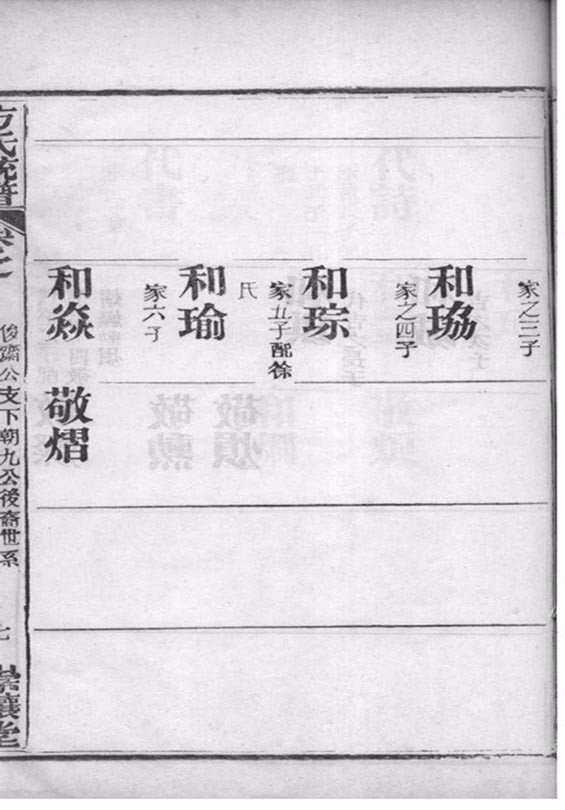 家之三子
和瑦
家之四子
和琮
家五子配徐
氏
和瑜
家六子
和焱
敬熠
方氏統譜
卷之
俊齋公支下朝九公後裔世系
七